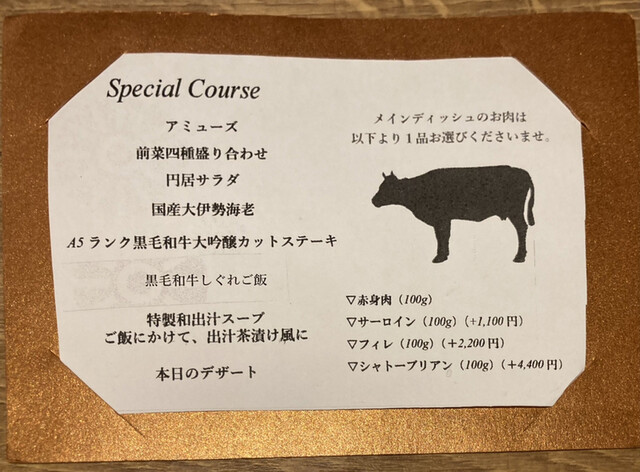 Special Course
アミューズ
前菜四種盛り合わせ
円居サラダ
国産大伊勢海老
A5 ランク黒毛和牛大吟醸カットステーキ
黒毛和牛しぐれご飯
特製和出汁スープ
ご飯にかけて、出汁茶漬け風に
本日のデザート
メインディッシュのお肉は
以下より１品お選びくださいませ。
▽赤身肉（100g）
▽サーロイン（100g）（+1,100 円）
▽フィレ（100g）（＋2,200 円）
▽シャトーブリアン（100g）（＋4,400 円）